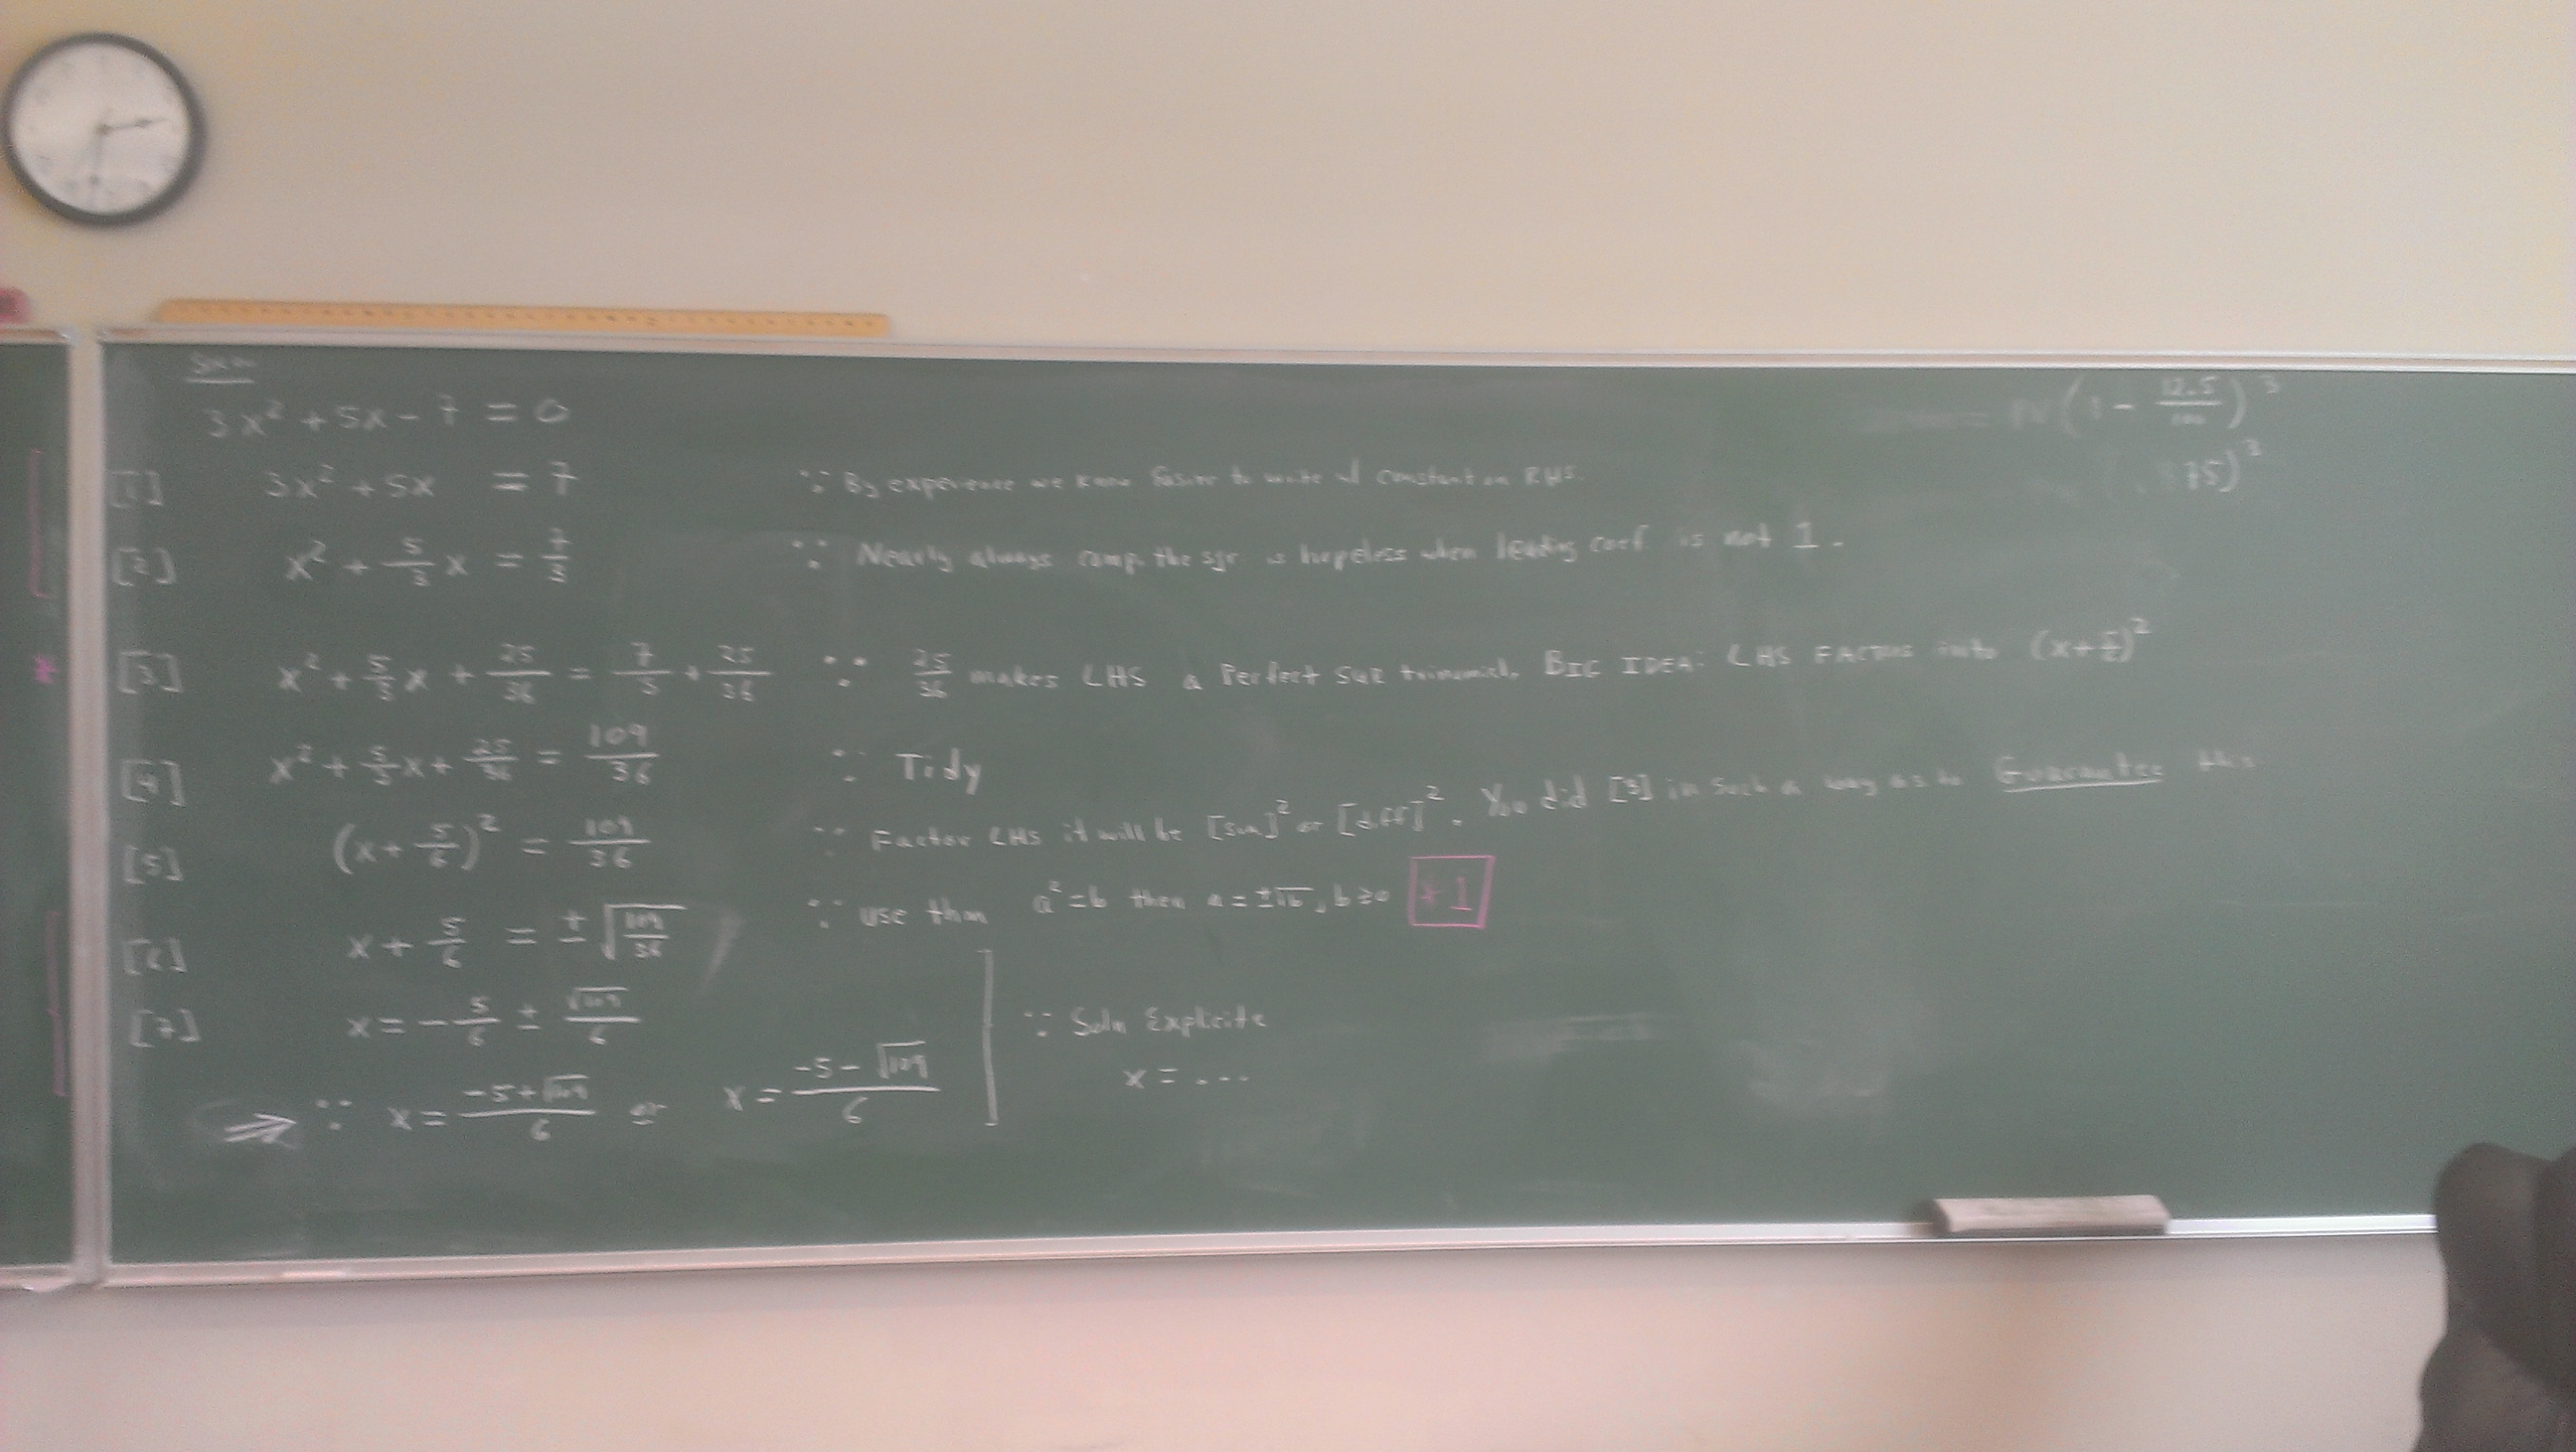 Soln
3x² + 5x - 7 = 0
[1] 3x² + 5x = 7 ∵ By experience we know easier to write constant on RHS.
[2] x² + 5/3 x = 7/3 ∵ Nearly always comp. the sqr is hopeless when leading coef. is not 1.
* [3] x² + 5/3 x + 25/36 = 7/3 + 25/36 ∵ 25/36 makes LHS a Perfect SQR trinomial. BIG IDEA: LHS FACTORS into (x+5/6)²
[4] x² + 5/3 x + 25/36 = 109/36 ∵ Tidy
[5] (x + 5/6)² = 109/36 ∵ Factor LHS it will be [sum]² or [diff]². You did [3] in such a way as to Guarantee this
[6] x + 5/6 = ± √(109/36) ∵ use thm a² = b then a = ±√b, b ≥ 0 *1
[7] x = - 5/6 ± √109/6
⇒ ∵ x = (-5+√109)/6 or x = (-5-√109)/6 ∵ Soln Explicite
x = ...
(1 - 12.5/100)³
(.875)³